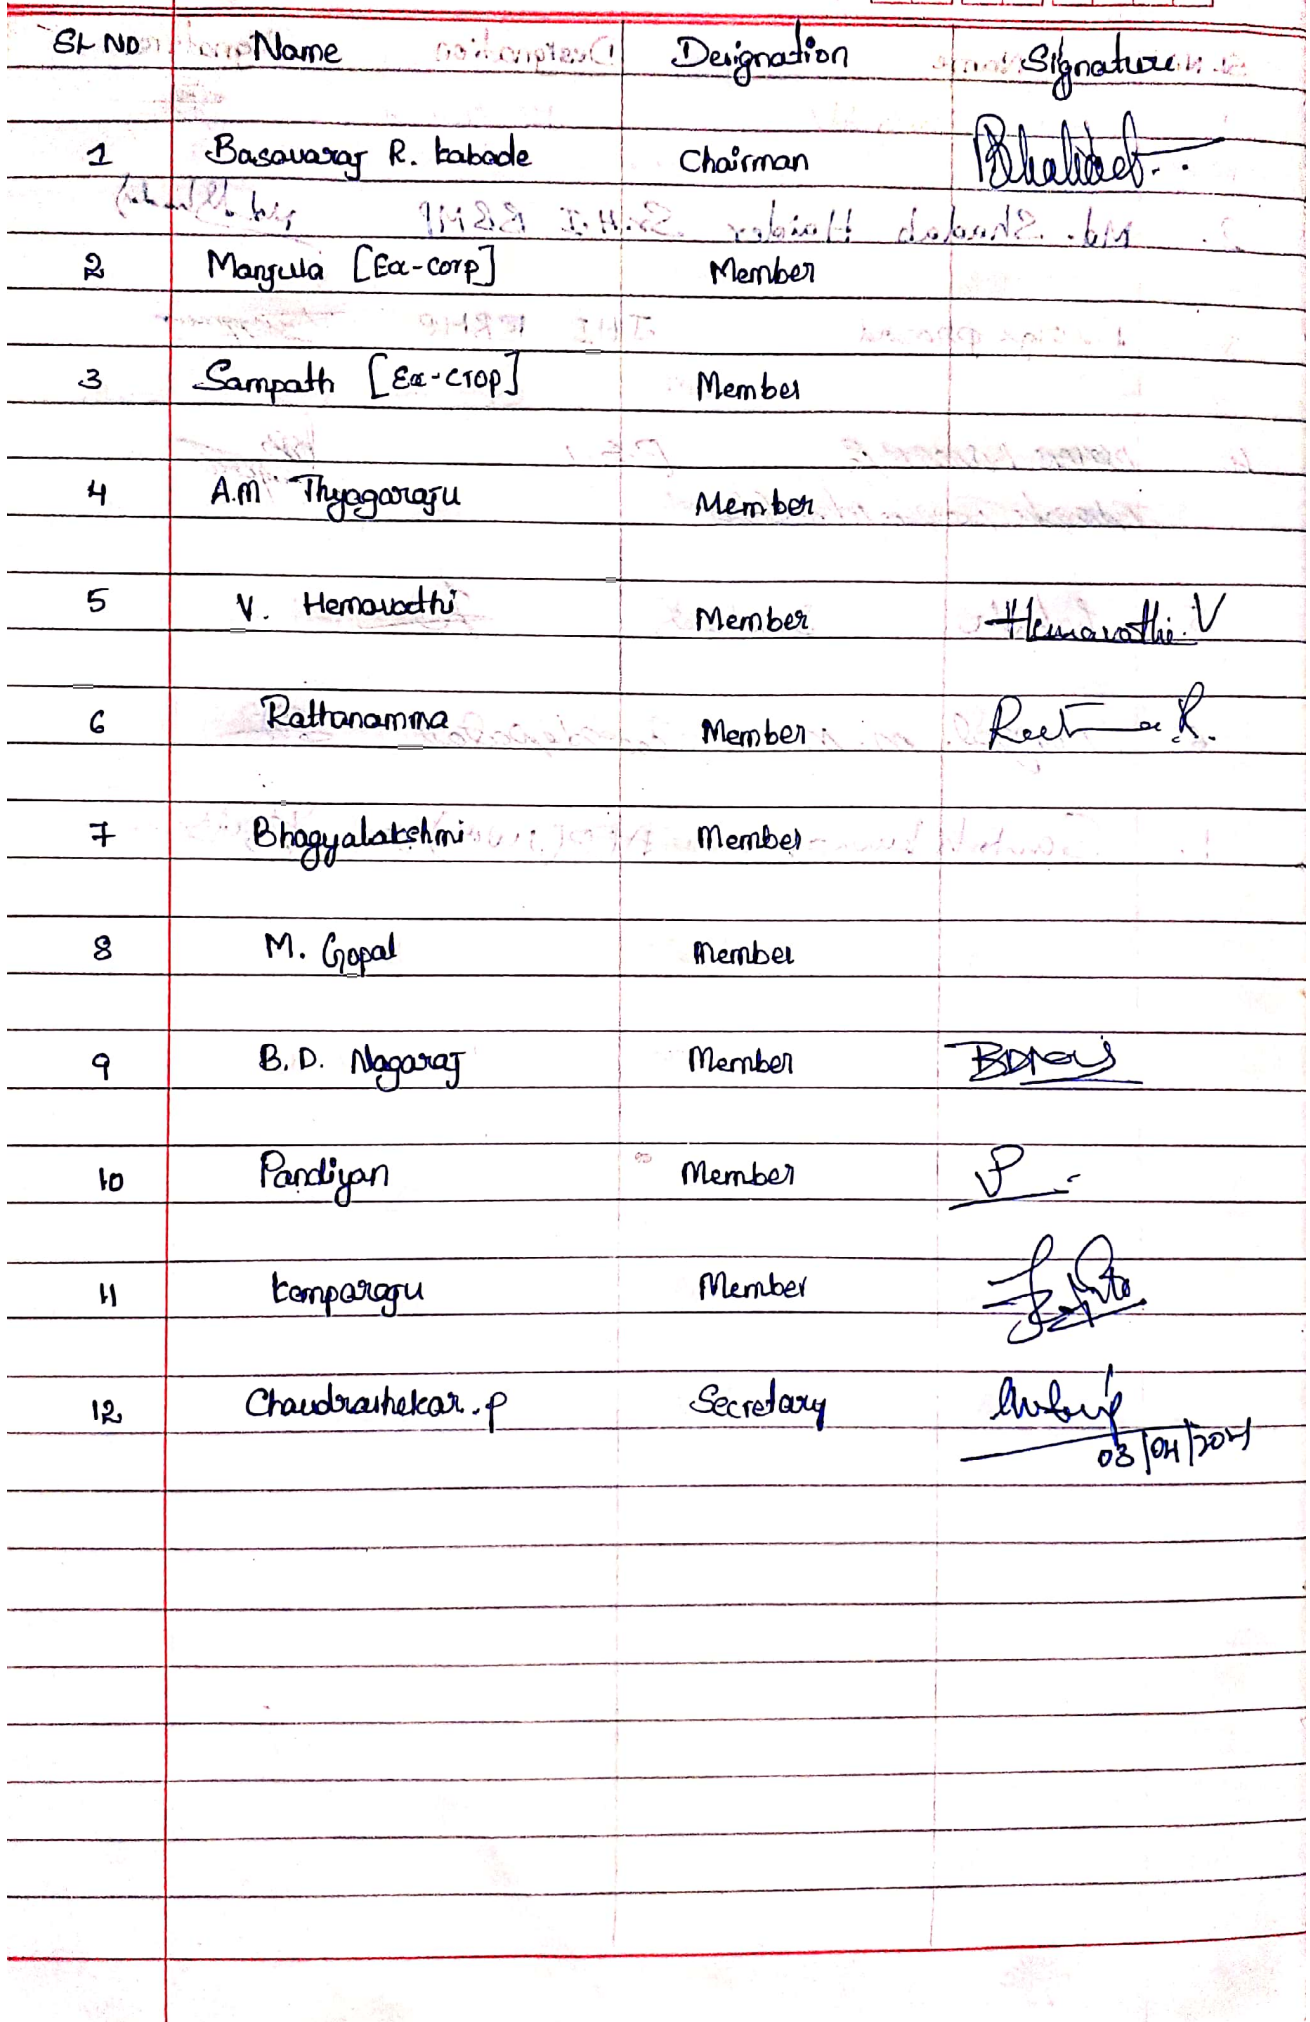 SL NO Name Designation Signature
1 Basavaraj R. kabade Chairman
2 Manjula [Ex-corp] Member
3 Sampath [Ex-crop] Member
4 A.M Thyagaraju Member
5 V. Hemavathi Member Hemavathi.V
6 Rathanamma Member
7 Bhagyalakshmi Member
8 M. Gopal Member
9 B.D. Nagaraj Member
10 Pandiyan Member P
11 kemparaju Member
12 Chandrashekar.P Secretary
03/04/2021